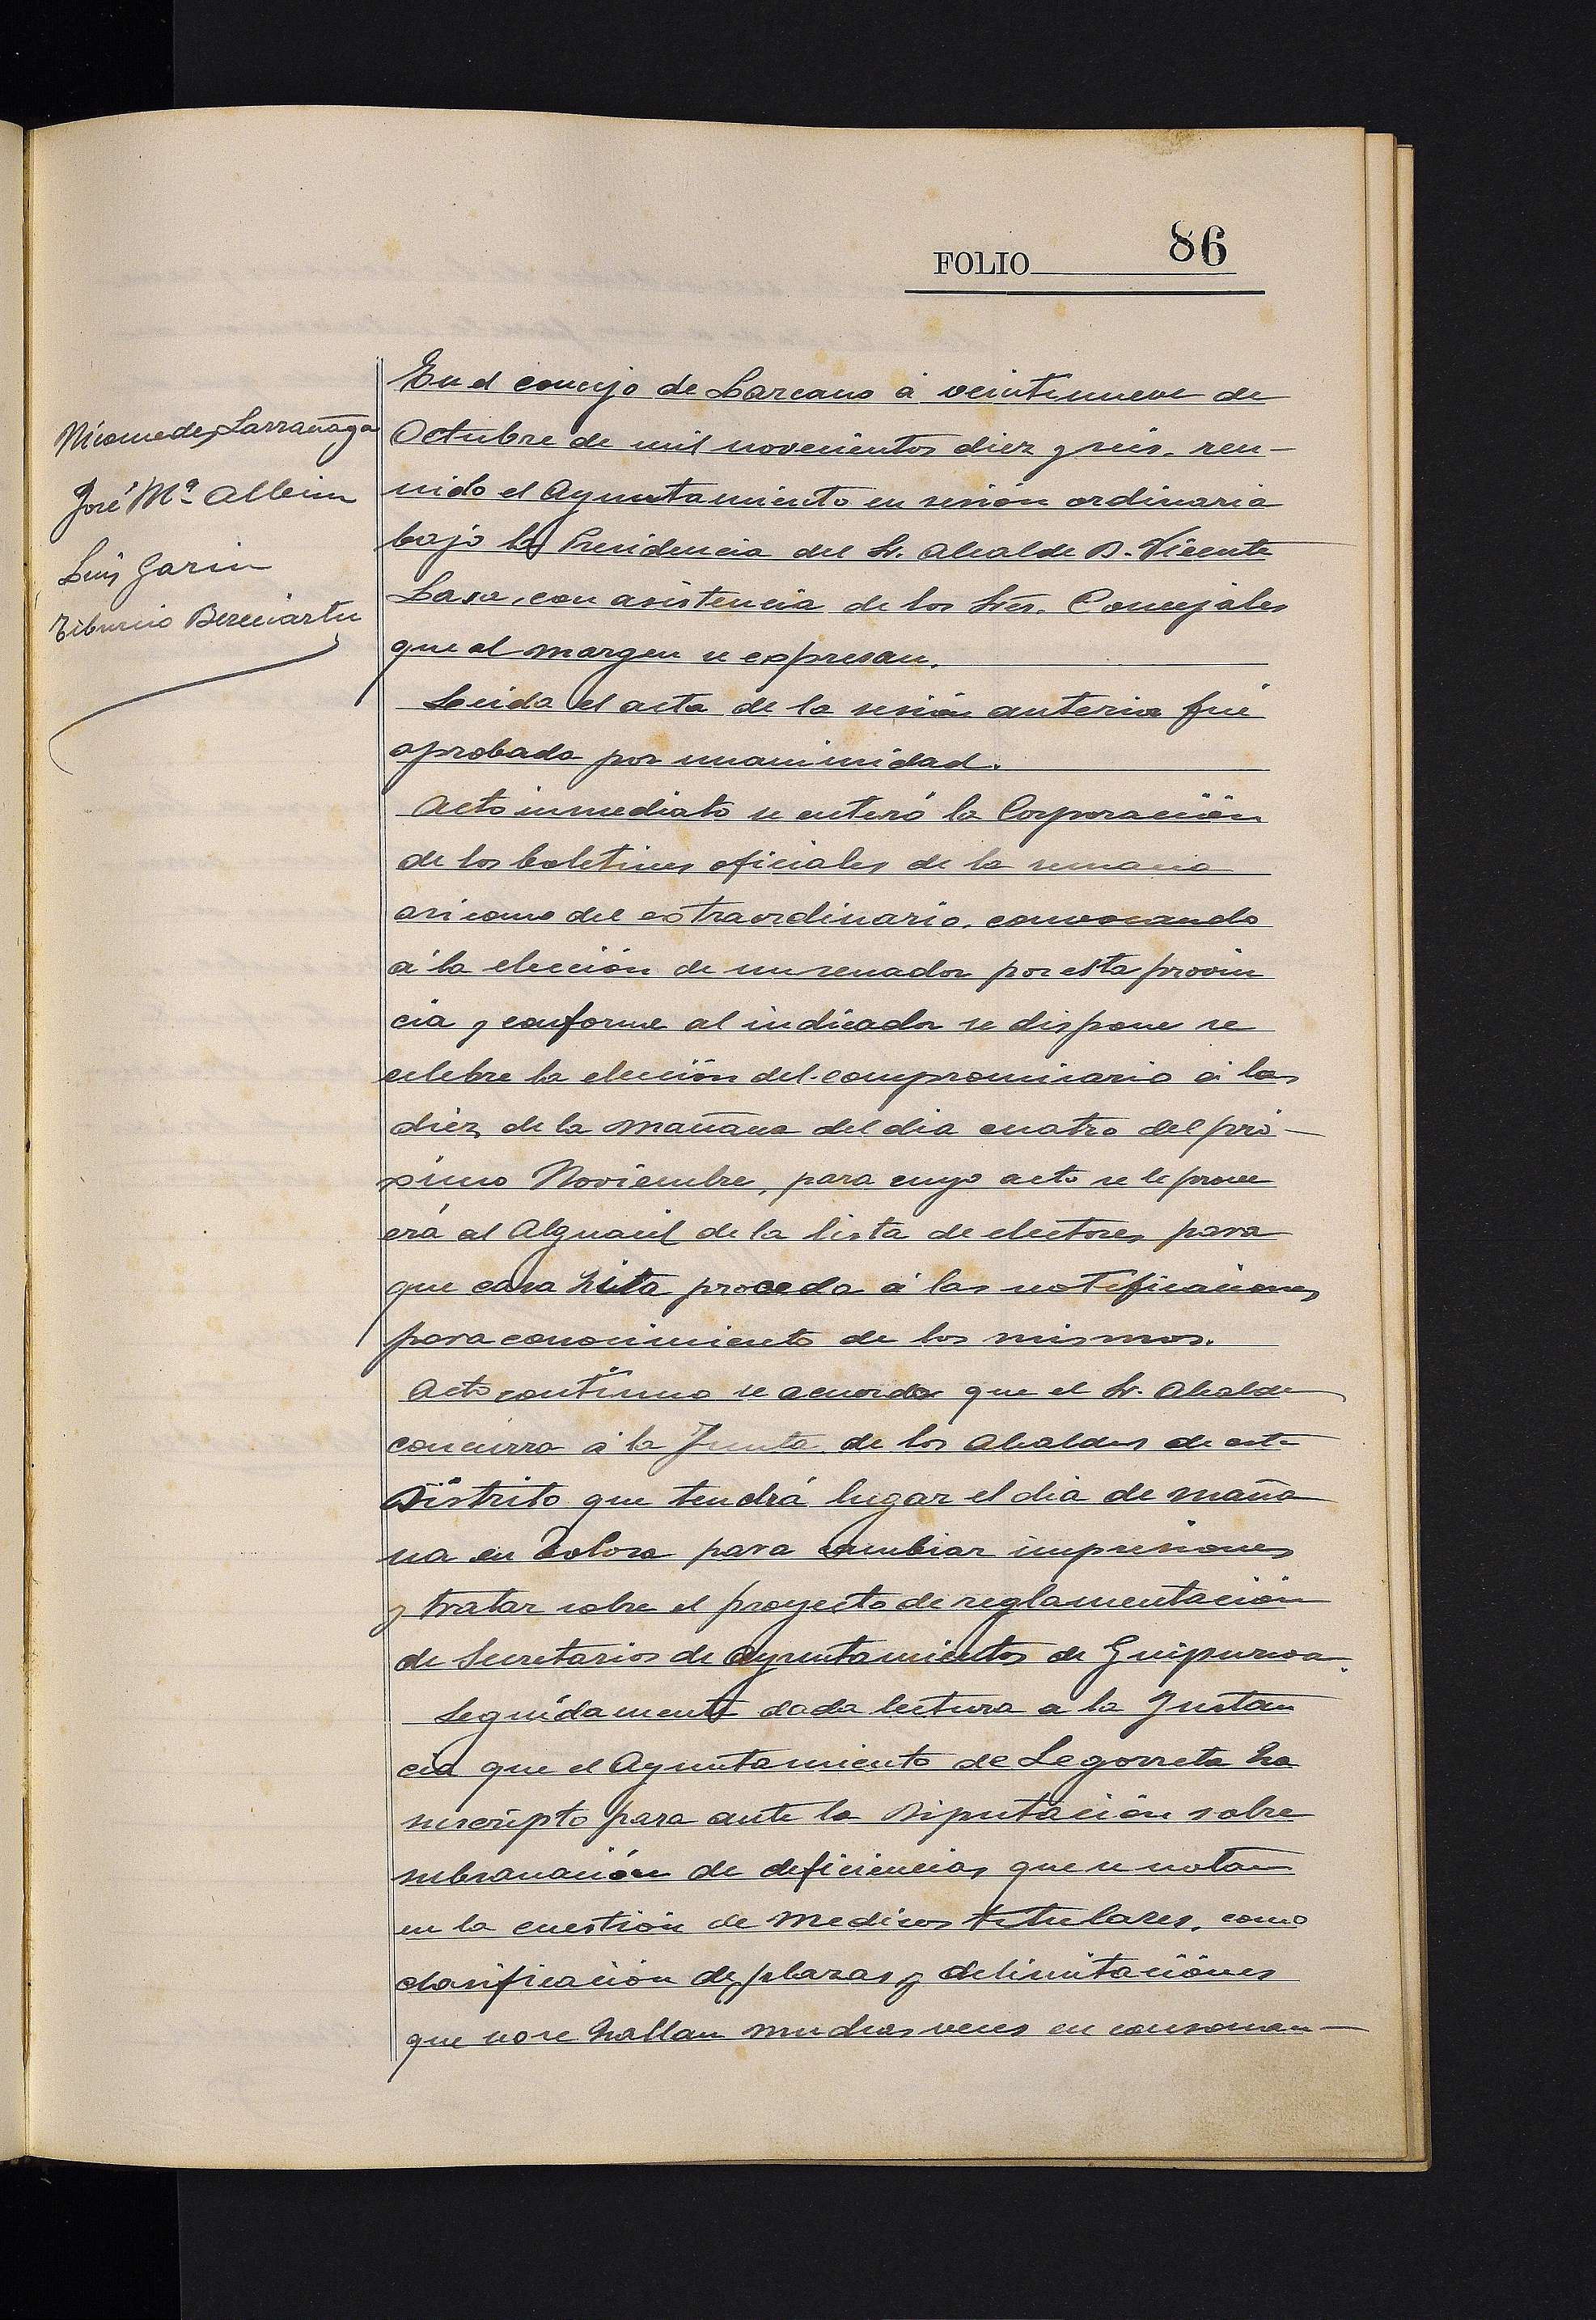 FOLIO 86
Nicomedes Larrañaga
José Mª Alberin
Luis Garin
Tiburcio Bereciartu
En el concejo de Lazcano á veintinueve de
Octubre de mil novecientos diez y seis, reu-
nido el Ayuntamiento en sesión ordinaria
bajo la Presidencia del Sr. Alcalde D. Vicente
Lasa, con asistencia de los Sres. Concejales
que al margen se expresan.
Leida el acta de la sesión anterior fué
aprobada por unanimidad.
Acto inmediato se enteró la Corporación
de los boletines oficiales de la semana
asi como del extraordinario, convocando
á la elección de un senador por esta provin
cia y conforme al indicador se dispone se
celebre la elección del compromisario á las
diez de la mañana del dia cuatro del pró-
ximo Noviembre, para cuyo acto se le prove
erá al Alguacil de la lista de electores para
que casa hita proceda á las notificaciones
para conocimiento de los mismos.
Acto continuo se acuerda que el Sr. Alcalde
concurra á la Junta de los Alcaldes de este
Distrito que tendrá lugar el dia de maña
na en Tolosa para cambiar impresiones
y tratar sobre el proyecto de reglamentación
de Secretarios de Ayuntamientos de Guipuzcoa.
Seguidamente dada lectura a la Instan
cia que el Ayuntamiento de Legorreta ha
suscripto para ante la Diputación sobre
subsanación de deficiencias que se notan
en la cuestión de Medicos titulares, como
clasificación de plazas y delimitaciones
que no se hallan muchas veces en consonan-